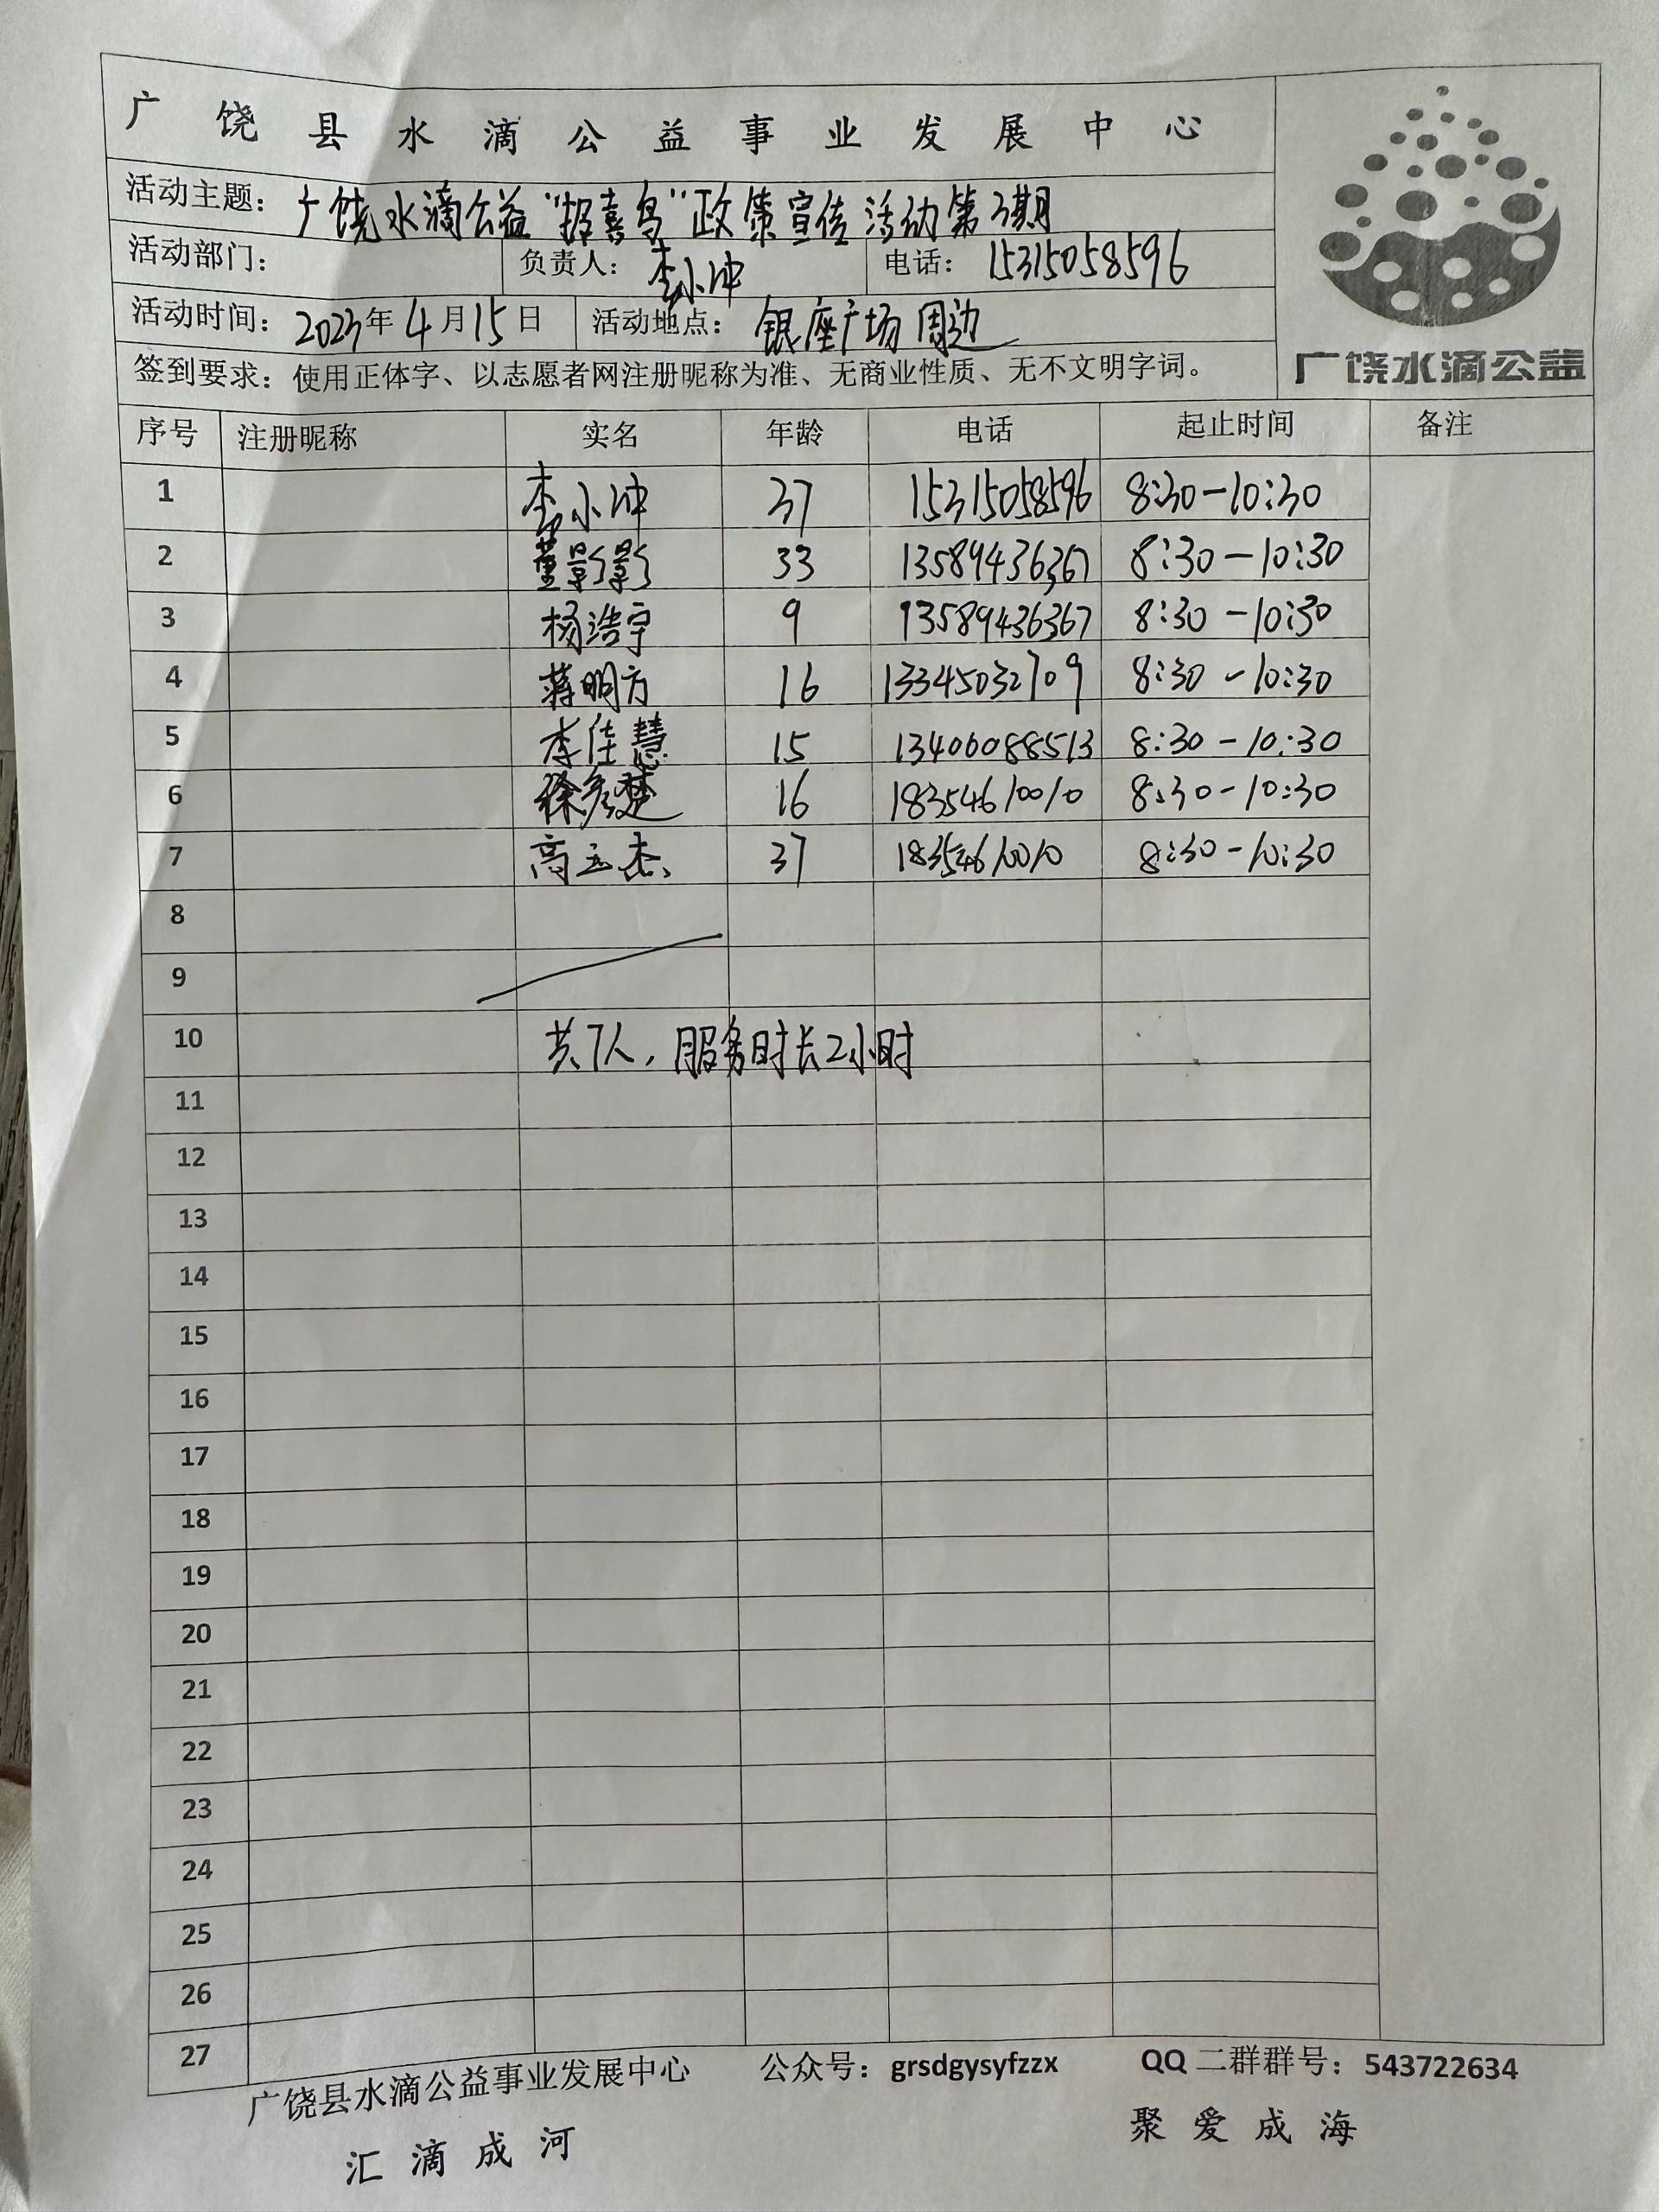 广饶县水滴公益事业发展中心
活动主题：广饶水滴公益“报喜鸟”政策宣传活动第3期
活动部门： 负责人：李小冲 电话：15315058596
活动时间：2023年4月15日 活动地点：银座广场周边
签到要求：使用正体字、以志愿者网注册昵称为准、无商业性质、无不文明字词。
广饶水滴公益
序号 注册昵称 实名 年龄 电话 起止时间 备注
1 李小冲 37 15315058596 8:30-10:30
2 董影影 33 13589436367 8:30-10:30
3 杨浩宇 9 13589436367 8:30-10:30
4 蒋明方 16 13345032709 8:30-10:30
5 李佳慧 15 13406088513 8:30-10:30
6 徐彦楚 16 18354610010 8:30-10:30
7 高玉杰 37 18354610010 8:30-10:30
8
9
10 共7人，服务时长2小时
11
12
13
14
15
16
17
18
19
20
21
22
23
24
25
26
27
广饶县水滴公益事业发展中心 公众号：grsdgysyfzzx QQ 二群群号：543722634
汇滴成河 聚爱成海